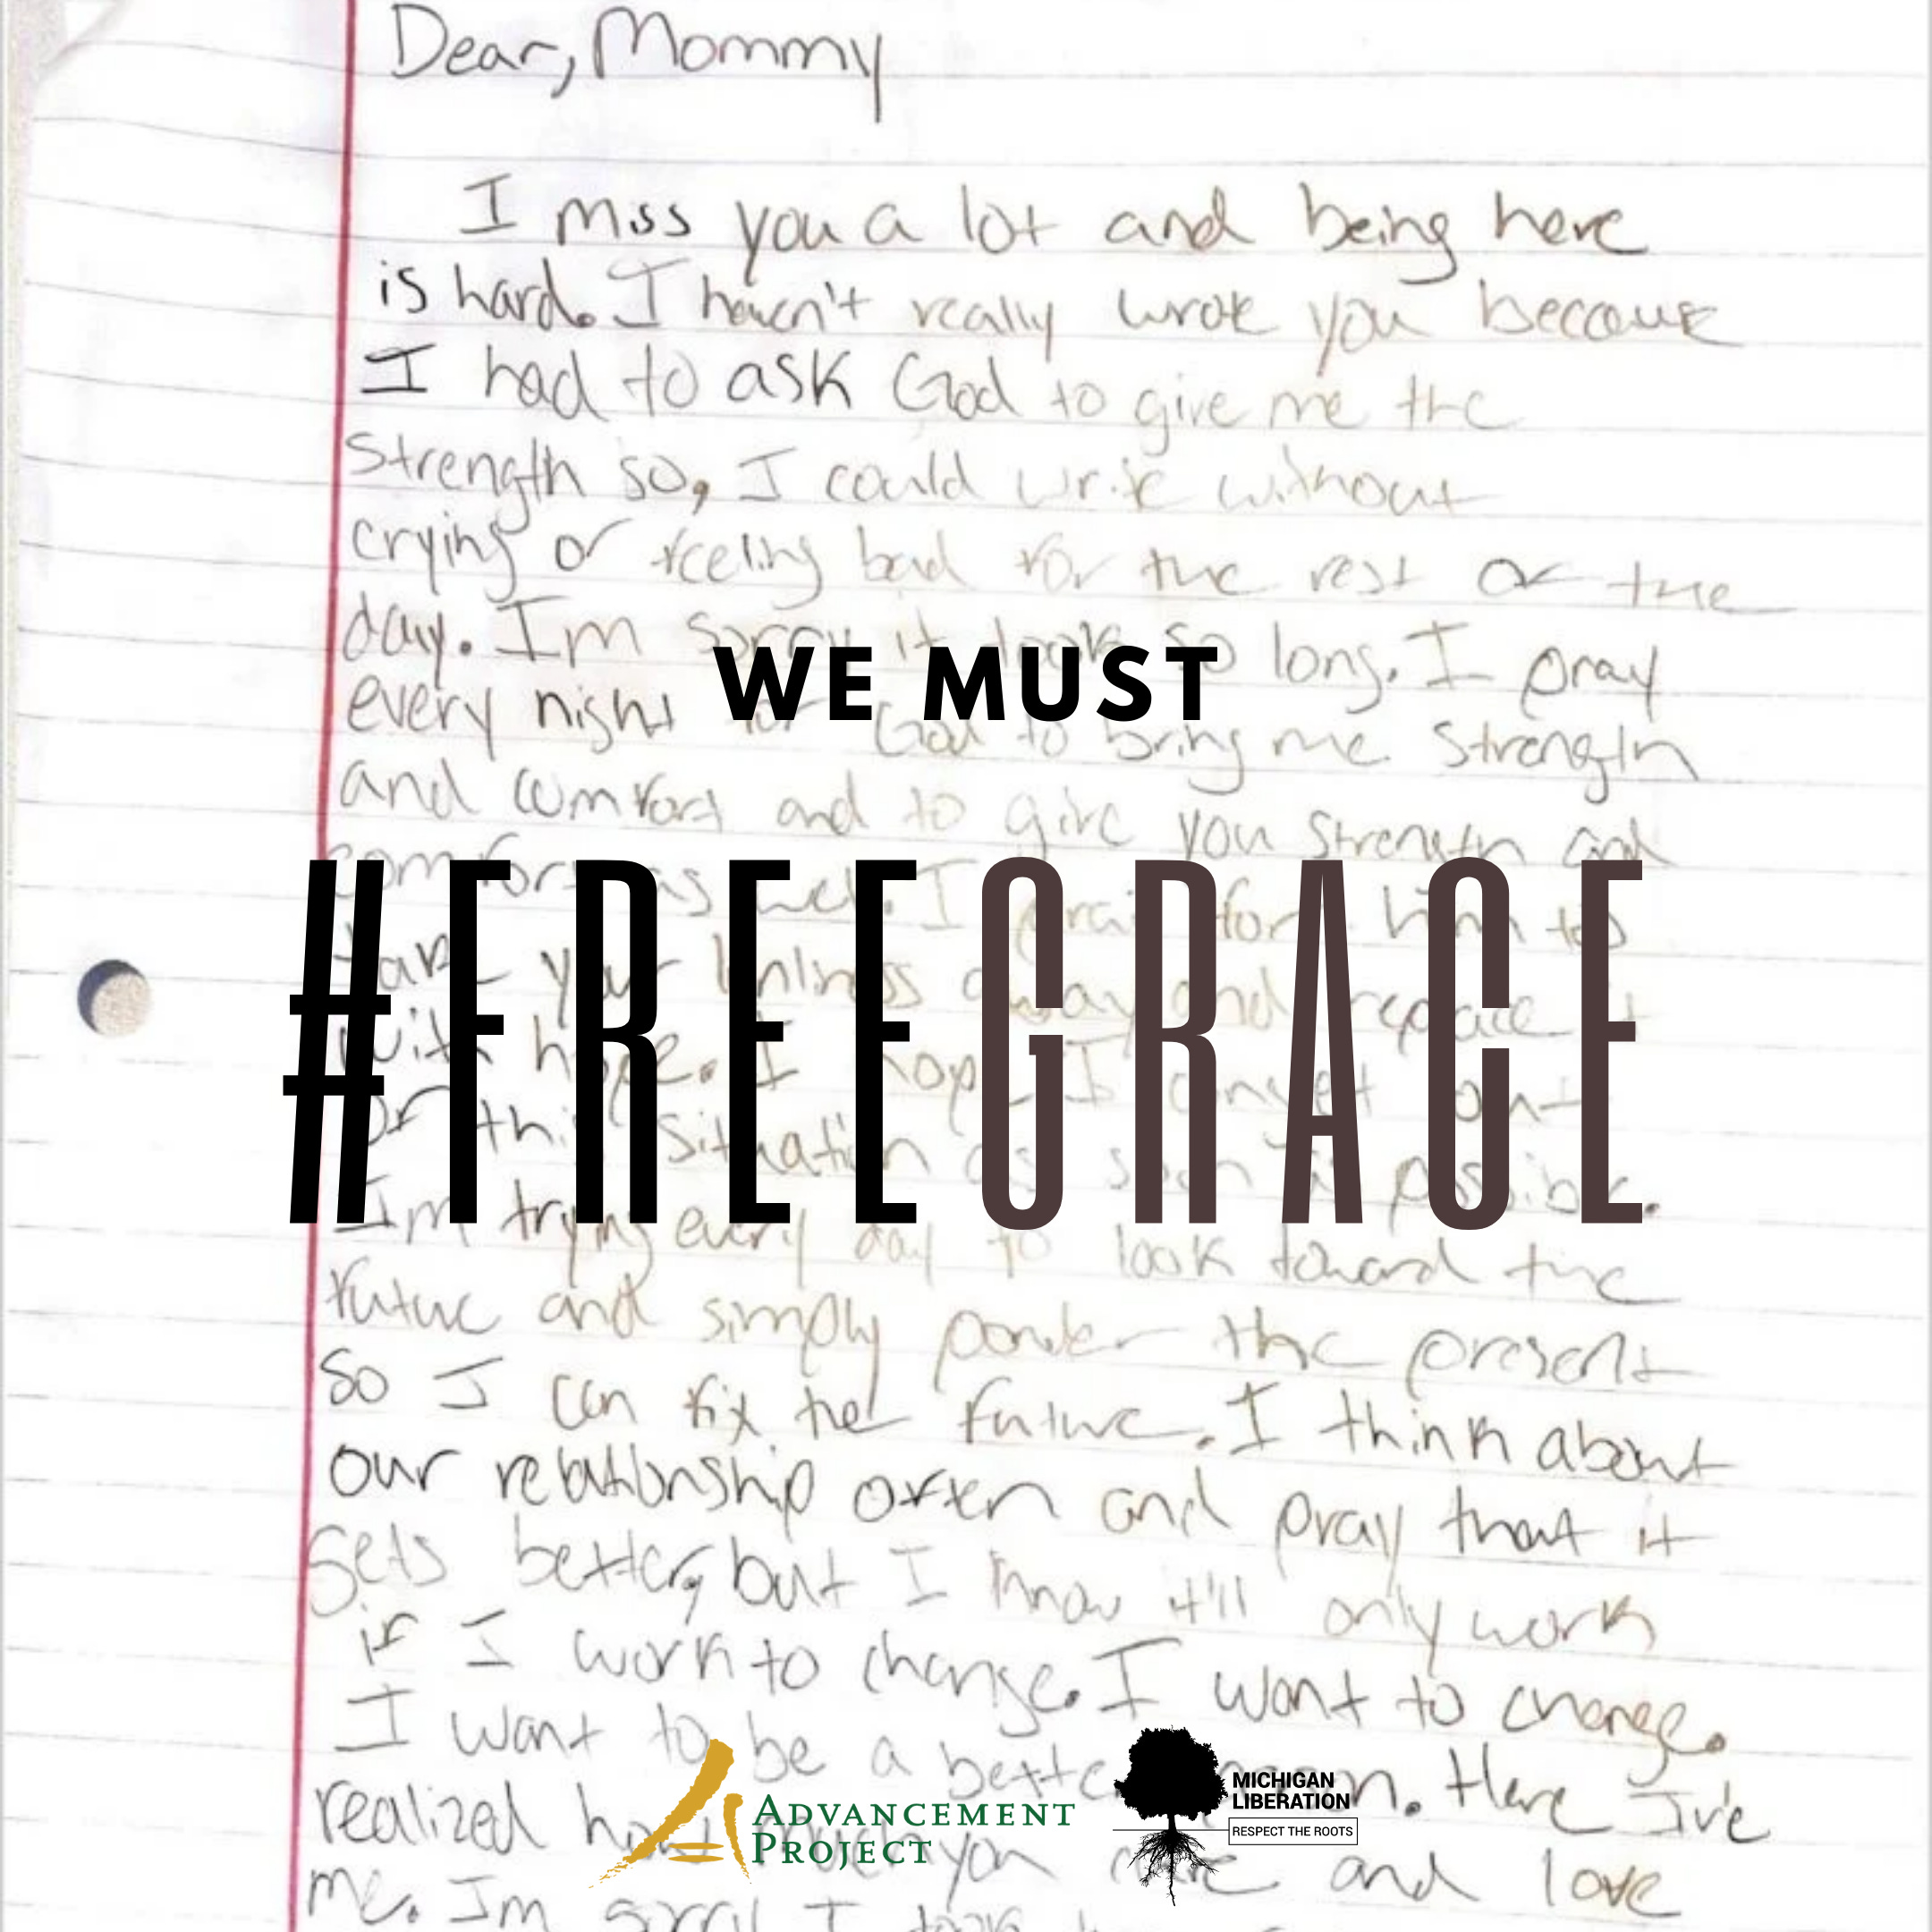 Dear, Mommy
I miss you a lot and being here
is hard. I haven't really wrote you because
I had to ask God to give me the
strength so, I could write without
crying or feeling bad for the rest of the
day. Im sorry it took so long. I pray
WE MUST
every night for God to bring me strength
and comfort and to give you strength and
comfort as well. I for him to
take your away and replace it
#FREEGRACE
with hope. I hope I can get out
of this situation as soon as possible.
Im trying every day to look toward the
future and simply ponder the present
so I can fix the future. I think about
our relationship often and pray that it
gets better, but I know it'll only work
if I work to change. I want to change.
I want to be a better person. Here I've
realized how much you care and love
ADVANCEMENT
PROJECT
MICHIGAN
LIBERATION
RESPECT THE ROOTS
me. Im sorry I took